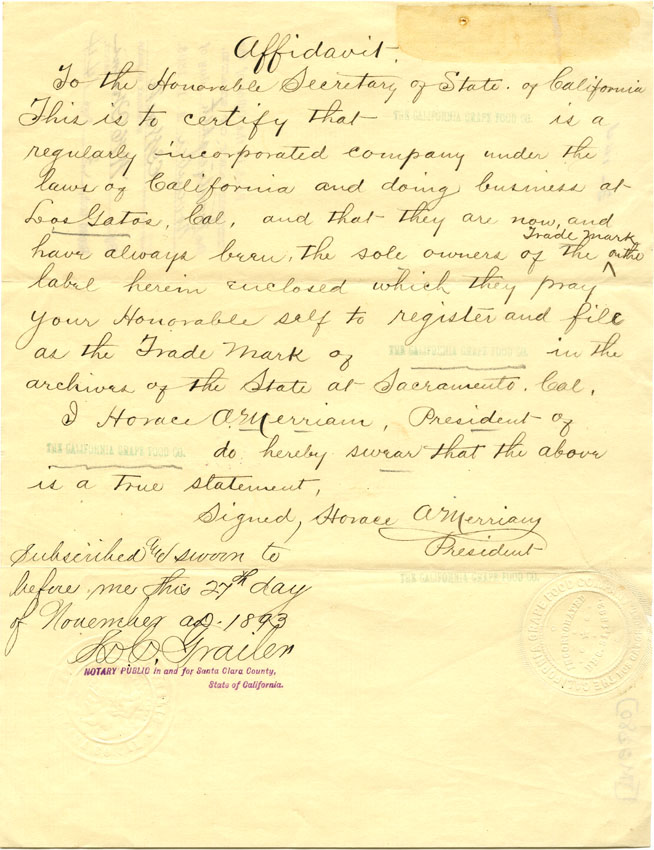 Affidavit.
To the Honorable Secretary of State. of California
This is to certify that THE CALIFORNIA GRAPE FOOD CO. is a
regularly incorporated company under the
laws of California and doing business at
Los Gatos, Cal, and that they are now, and
have always been, the sole owners of the Trade Mark on the
label herein enclosed which they pray
your Honorable self to register and file
as the Trade Mark of THE CALIFORNIA GRAPE FOOD CO. in the
archives of the State at Sacramento. Cal.
I Horace A. Merriam, President of
THE CALIFORNIA GRAPE FOOD CO. do hereby swear that the above
is a true statement,
Signed, Horace A Merriam
President
THE CALIFORNIA GRAPE FOOD CO.
Subscribed and sworn to
before me this 27th day
of November a.D. 1893
Trailer
NOTARY PUBLIC in and for Santa Clara County,
State of California.
CALIFORNIA GRAPE FOOD